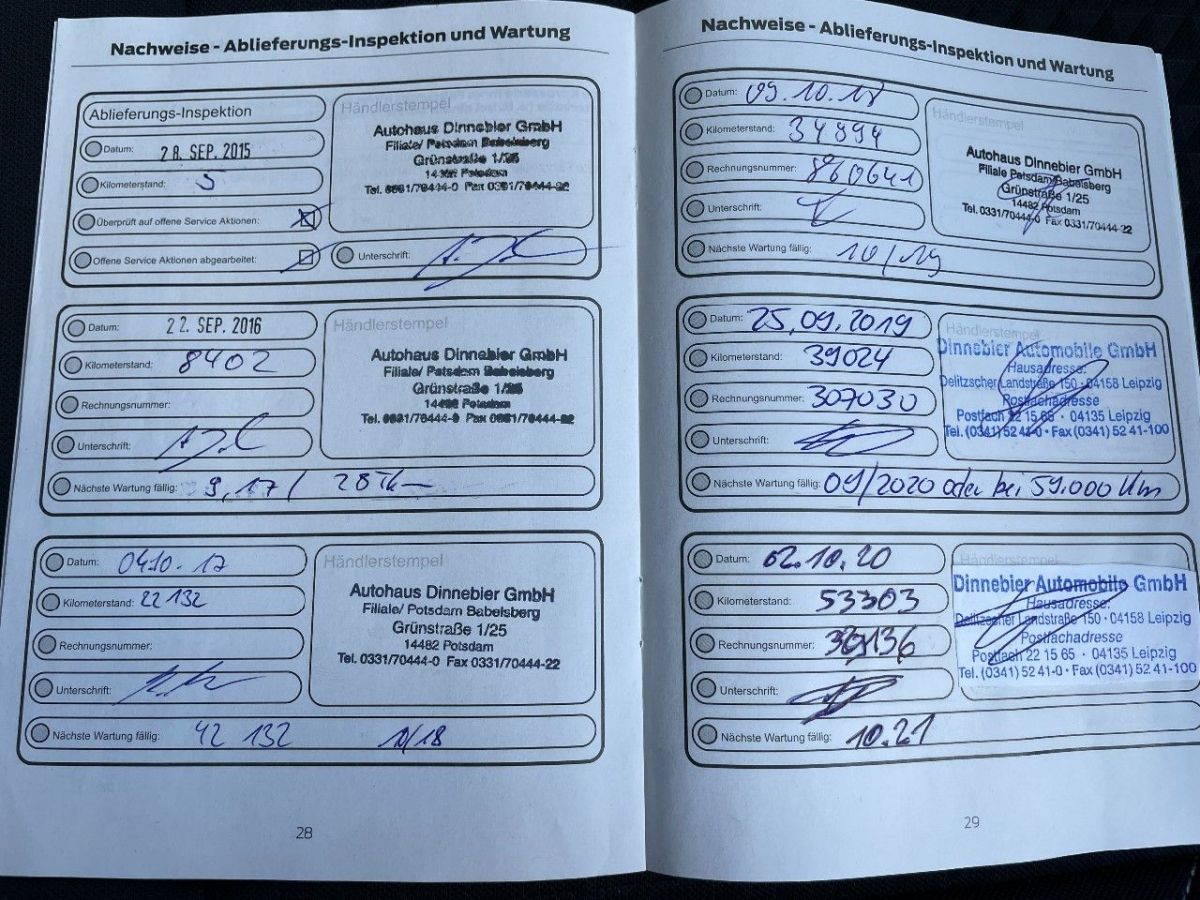 Nachweise - Ablieferungs-Inspektion und Wartung
Ablieferungs-Inspektion
Datum: 28. SEP. 2015
Kilometerstand: 5
Überprüft auf offene Service Aktionen:
Offene Service Aktionen abgearbeitet:
Händlerstempel
Autohaus Dinnebier GmbH
Filiale/ Potsdam Babelsberg
Grünstraße 1/25
14482 Potsdam
Tel. 0331/70444-0 Fax 0331/70444-22
Unterschrift:
Datum: 22. SEP. 2016
Kilometerstand: 8402
Rechnungsnummer:
Unterschrift:
Händlerstempel
Autohaus Dinnebier GmbH
Filiale/ Potsdam Babelsberg
Grünstraße 1/25
14482 Potsdam
Tel. 0331/70444-0 Fax 0331/70444-22
Nächste Wartung fällig: 9.17 / 28Tk
Datum: 0410.17
Kilometerstand: 22132
Rechnungsnummer:
Unterschrift:
Händlerstempel
Autohaus Dinnebier GmbH
Filiale/ Potsdam Babelsberg
Grünstraße 1/25
14482 Potsdam
Tel. 0331/70444-0 Fax 0331/70444-22
Nächste Wartung fällig: 42 132 10/18
28
Nachweise - Ablieferungs-Inspektion und Wartung
Datum: 09.10.18
Kilometerstand: 34894
Rechnungsnummer: 860641
Unterschrift:
Händlerstempel
Autohaus Dinnebier GmbH
Filiale Potsdam/Babelsberg
Grünstraße 1/25
14482 Potsdam
Tel. 0331/70444-0 Fax 0331/70444-22
Nächste Wartung fällig: 10/19
Datum: 25.09.2019
Kilometerstand: 39024
Rechnungsnummer: 307030
Unterschrift:
Händlerstempel
Dinnebier Automobile GmbH
Hausadresse:
Delitzscher Landstraße 150 · 04158 Leipzig
Postfachadresse
Postfach 22 15 65 · 04135 Leipzig
Tel. (0341) 52 41-0 · Fax (0341) 52 41-100
Nächste Wartung fällig: 09/2020 oder bei 59.000 Km
Datum: 02.10.20
Kilometerstand: 53303
Rechnungsnummer:
Unterschrift:
Händlerstempel
Dinnebier Automobile GmbH
Hausadresse:
Delitzscher Landstraße 150 · 04158 Leipzig
Postfachadresse
Postfach 22 15 65 · 04135 Leipzig
Tel. (0341) 52 41-0 · Fax (0341) 52 41-100
Nächste Wartung fällig: 10.21
29